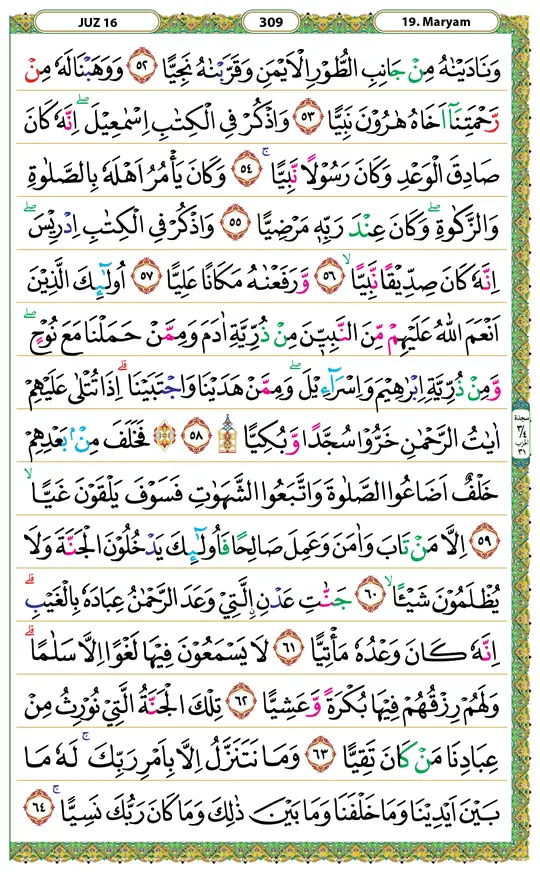 JUZ 16
309
19. Maryam
وَنَادَيْنٰهُ مِنْ جَانِبِ الطُّوْرِ الْاَيْمَنِ وَقَرَّبْنٰهُ نَجِيًّا ﴿٥٢﴾ وَوَهَبْنَا لَهٗ مِنْ
رَّحْمَتِنَآ اَخَاهُ هٰرُوْنَ نَبِيًّا ﴿٥٣﴾ وَاذْكُرْ فِى الْكِتٰبِ اِسْمٰعِيْلَ ۖ اِنَّهٗ كَانَ
صَادِقَ الْوَعْدِ وَكَانَ رَسُوْلًا نَّبِيًّا ۚ ﴿٥٤﴾ وَكَانَ يَأْمُرُ اَهْلَهٗ بِالصَّلٰوةِ
وَالزَّكٰوةِ ۖ وَكَانَ عِنْدَ رَبِّهٖ مَرْضِيًّا ﴿٥٥﴾ وَاذْكُرْ فِى الْكِتٰبِ اِدْرِيْسَ ۖ
اِنَّهٗ كَانَ صِدِّيْقًا نَّبِيًّا ۙ ﴿٥٦﴾ وَّرَفَعْنٰهُ مَكَانًا عَلِيًّا ﴿٥٧﴾ اُولٰۤىِٕكَ الَّذِيْنَ
اَنْعَمَ اللّٰهُ عَلَيْهِمْ مِّنَ النَّبِيّٖنَ مِنْ ذُرِّيَّةِ اٰدَمَ وَمِمَّنْ حَمَلْنَا مَعَ نُوْحٍ ۖ
وَّمِنْ ذُرِّيَّةِ اِبْرٰهِيْمَ وَاِسْرَاۤءِيْلَ ۖ وَمِمَّنْ هَدَيْنَا وَاجْتَبَيْنَا ۗ اِذَا تُتْلٰى عَلَيْهِمْ
اٰيٰتُ الرَّحْمٰنِ خَرُّوْا سُجَّدًا وَّبُكِيًّا ۩ ﴿٥٨﴾ ۞ فَخَلَفَ مِنْۢ بَعْدِهِمْ
خَلْفٌ اَضَاعُوا الصَّلٰوةَ وَاتَّبَعُوا الشَّهَوٰتِ فَسَوْفَ يَلْقَوْنَ غَيًّا ۙ
﴿٥٩﴾ اِلَّا مَنْ تَابَ وَاٰمَنَ وَعَمِلَ صَالِحًا فَاُولٰۤىِٕكَ يَدْخُلُوْنَ الْجَنَّةَ وَلَا
يُظْلَمُوْنَ شَيْـًٔا ۙ ﴿٦٠﴾ جَنّٰتِ عَدْنِ ۨالَّتِيْ وَعَدَ الرَّحْمٰنُ عِبَادَهٗ بِالْغَيْبِ ۗ
اِنَّهٗ كَانَ وَعْدُهٗ مَأْتِيًّا ﴿٦١﴾ لَا يَسْمَعُوْنَ فِيْهَا لَغْوًا اِلَّا سَلٰمًا ۗ
وَلَهُمْ رِزْقُهُمْ فِيْهَا بُكْرَةً وَّعَشِيًّا ﴿٦٢﴾ تِلْكَ الْجَنَّةُ الَّتِيْ نُوْرِثُ مِنْ
عِبَادِنَا مَنْ كَانَ تَقِيًّا ﴿٦٣﴾ وَمَا نَتَنَزَّلُ اِلَّا بِاَمْرِ رَبِّكَ ۚ لَهٗ مَا
بَيْنَ اَيْدِيْنَا وَمَا خَلْفَنَا وَمَا بَيْنَ ذٰلِكَ وَمَا كَانَ رَبُّكَ نَسِيًّا ۚ ﴿٦٤﴾
سجدة
٣/٤
الحزب
٣١